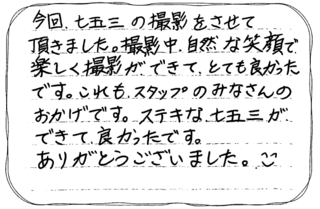 今回、七五三の撮影をさせて
頂きました。撮影中、自然な笑顔で
楽しく撮影ができて、とても良かった
です。これも、スタップのみなさんの
おかげです。ステキな、七五三が、
できて、良かったです。
ありがとうございました。